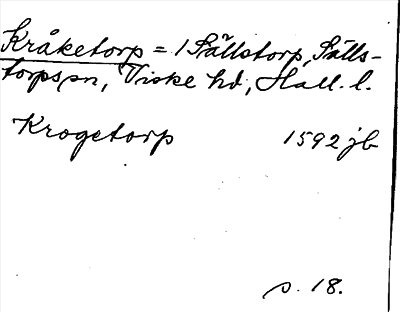 Kråketorp = 1 Sällstorp, Sälls-
torps sn, Viske hd, Hall. l.
Krogetorp 1592 jb
s. 18.